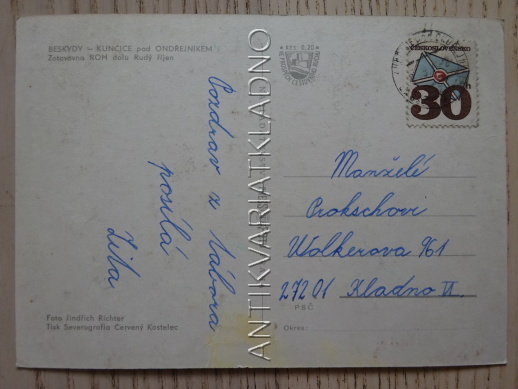 BESKYDY – KUNČICE pod ONDŘEJNÍKEM
Zotavovna ROH dolu Rudý říjen
Pozdrav z tábora
posílá
Zita
Foto Jindřich Richter
Tisk Severografia Červený Kostelec
ANTIKVARIATKLADNO
ČESKOSLOVENSKO
30
Manželé
Prokschovi
Wolkerova 961
27201 Kladno II.
PSČ
Okres